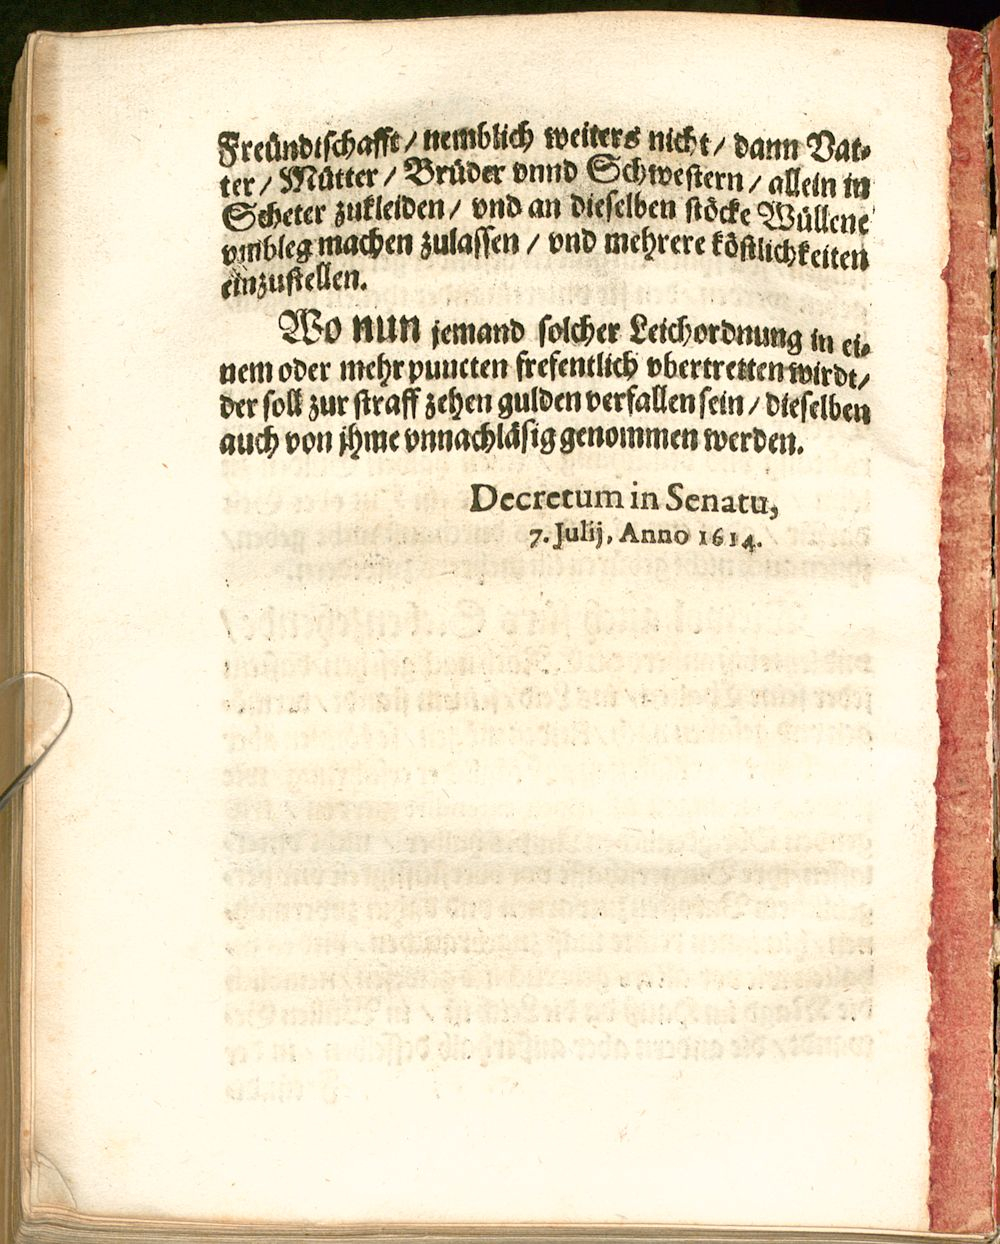 Freündtschafft / nemblich weiters nicht / dann Vat-
ter / Mütter / Brüder vnnd Schwestern / allein in
Scheter zukleiden / vnd an dieselben stöcke Wüllene
vmbleg machen zulassen / vnd mehrere köstlichkeiten
einzustellen.
Wo nun jemand solcher Leichordnung in ei-
nem oder mehr puncten frefentlich vbertretten wirdt /
der soll zur straff zehen gulden verfallen sein / dieselben
auch von jhme vnnachläsig genommen werden.
Decretum in Senatu,
7. Julij, Anno 1614.